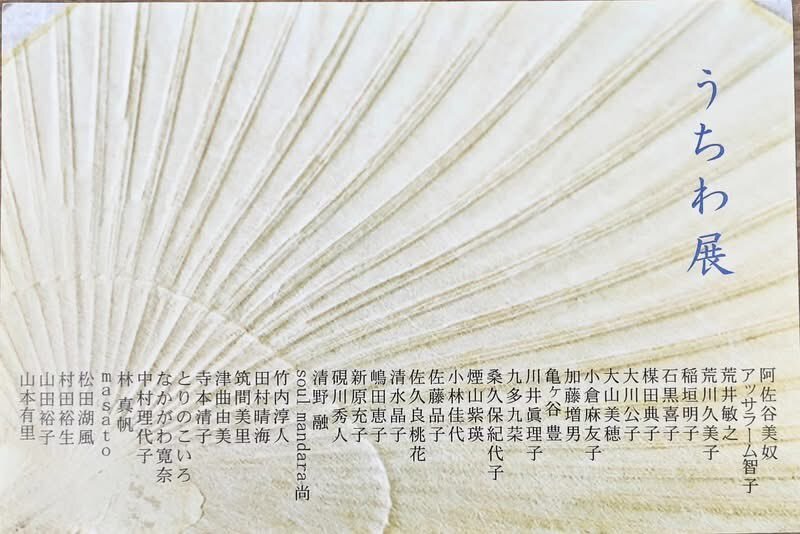 うちわ展
阿佐谷美奴
アッサラーム智子
荒井敏之
荒川久美子
稲垣明子
石黒喜子
楳田典子
大川公子
大山美穂
小倉麻友子
加藤増男
亀ヶ谷 豊
川井眞理子
九多九菜
桑久保紀代子
煙山紫瑛
小林佳代
佐藤品子
佐久良桃花
清水晶子
嶋田恵子
新原充子
硯川秀人
清野 融
soul mandara尚
竹内淳人
田村晴海
筑間美里
津曲由美
寺本清子
とりのこいろ
なかがわ寛奈
中村理代子
林 真帆
masato
松田湖風
村田裕生
山田裕子
山本有里